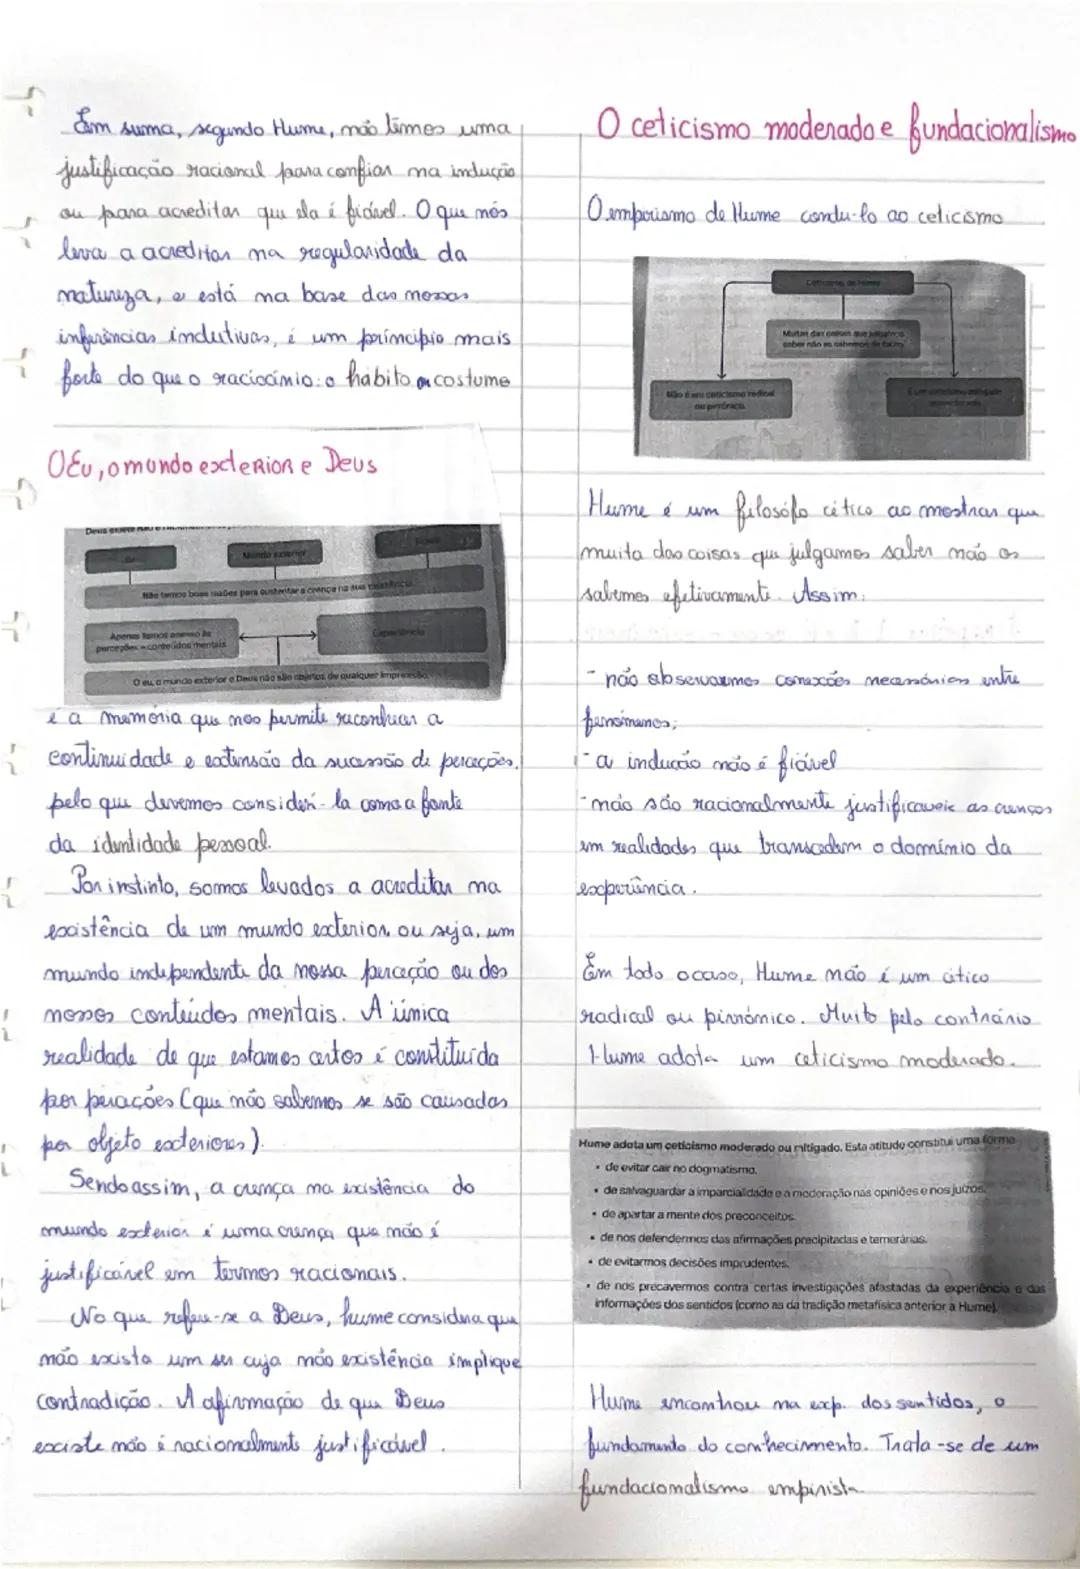 Em suma, segundo Hume, não temos uma
justificação racional para confiar na indução
ou para acreditar que ela é fiável. O que nós
leva a acreditar na regularidade da
natureza, e está na base das nossas
inferências indutivas, é um princípio mais
forte do que o raciocínio: o hábito ou costume
O Eu, o mundo exterior e Deus
Deus existe
Mundo exterior
Não temos boas razões para sustentar a crença na sua existência.
Apenas temos acesso às
perceções = conteúdos mentais
Experiência
O eu, o mundo exterior e Deus não são objetos de qualquer impressão.
é a memória que nos permite reconhecer a
continuidade e extensão da sucessão de perceções,
pelo que devemos considerá-la como a fonte
da identidade pessoal.
Por instinto, somos levados a acreditar na
existência de um mundo exterior, ou seja, um
mundo independente da nossa perceção ou dos
nossos conteúdos mentais. A única
realidade de que estamos certos é constituída
por perações (que não sabemos se são causadas
por objeto exteriores).
Sendo assim, a crença na existência do
mundo exterior é uma crença que não é
justificável em termos racionais.
No que refere-se a Deus, hume considera que
não exista um ser cuja não existência implique
contradição. A afirmação de que Deus
existe não é racionalmente justificável.
O ceticismo moderado e fundacionalismo
O empirismo de Hume condu-lo ao ceticismo
Ceticismo de Hume
Muitas das coisas que julgamos
saber não as sabemos de facto
Não é um ceticismo radical
ou pirrónico
É um ceticismo mitigado
ou moderado
Hume é um filosófo cético ao mostrar que
muita das coisas que julgamos saber não as
sabemos efetivamente. Assim:
- não observarmos conexões necessárias entre
fenómenos;
- a indução não é fiável
- não são racionalmente justificaveis as crenças
em realidades que transcedem o domínio da
experiência.
Em todo o caso, Hume não é um cético
radical ou pirrónico. Muito pelo contrário
Hume adota um ceticismo moderado.
Hume adota um ceticismo moderado ou mitigado. Esta atitude constitui uma forma
• de evitar cair no dogmatismo.
• de salvaguardar a imparcialidade e a moderação nas opiniões e nos juízos.
• de apartar a mente dos preconceitos.
• de nos defendermos das afirmações precipitadas e temerárias.
• de evitarmos decisões imprudentes.
• de nos precavermos contra certas investigações afastadas da experiência e das
informações dos sentidos (como as da tradição metafísica anterior a Hume).
Hume encontrou na exp. dos sentidos, o
fundamento do conhecimento. Trata-se de um
fundacionalismo empirista